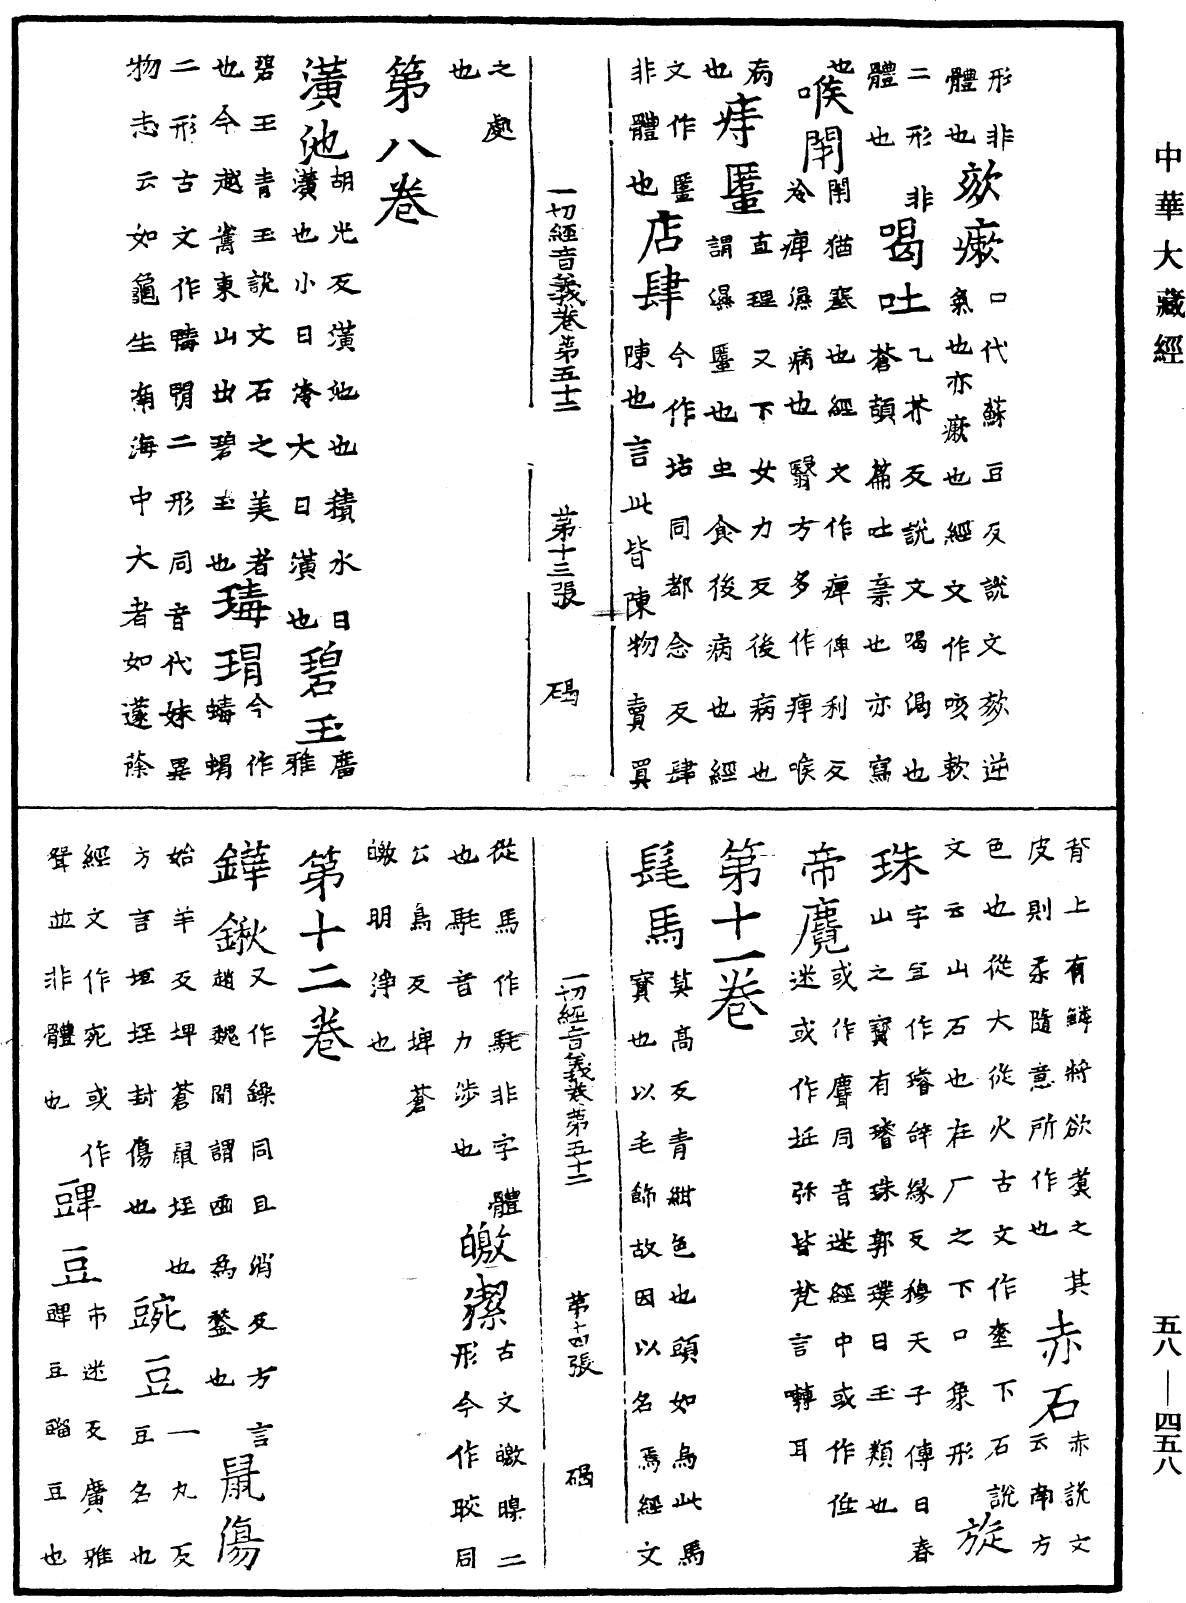 中華大藏經
形非
體也
欬瘷
口代蘇豆反說文欬逆
氣也亦瘷也經文作咳軟
二形非
體也
喝吐
乙芥反說文喝偈也
蒼頡篇吐棄也亦寫
也
喉閇
閇猶塞也經文作痺俾利反
冷痺濕病也醫方多作痺喉
病
也
痔䘌
直理反又下女力反後病也
謂濕䘌也虫食後病也經
文作匿
非體也
店肆
今作坫同都念反肆
陳也言此皆陳物賣買
一切經音義卷第五十二
第十三張
碣
之處
也
第八卷
潢池
胡光反潢池也積水曰
潢也小曰洿大曰潢也
碧玉
廣雅
碧玉青玉說文石之美者
也今越嶲東山出碧玉也
瑇瑁
今作蝳蝐
二形古文作𤿲𤿎二形同音代妹異
物志云如龜生南海中大者如蘧蒢
背上有鱗將欲煑之其
皮則柔隨意所作也
赤石
赤說文
云南方
色也從大從火古文作烾下石說
文云山石也在厂之下口象形
旋
珠
字宜作璿辝緣反穆天子傳曰春
山之寳有璿珠郭璞曰玉類也
帝麑
或作麞同音迷經中或作低
迷或作坻弥皆梵言囀耳
第十一卷
髦馬
莫高反青紺色也頭如烏此馬
寳也以毛飾故因以名焉經文
一切經音義卷第五十二
第十四張
碣
從馬作駹非字體
也駹音力涉也
皦潔
古文皦㬠二
形今作皎同
公鳥反埤蒼
皦明淨也
第十二卷
鏵鍬
又作鐰同且消反方言
趙魏閒謂臿為鍫也
鼠傷
始羊反埤蒼鼠坥也
方言坥坻封傷也
豌豆
一丸反
豆名也
經文作宛或作
聲並非體也
䝀豆
布迷反廣雅
䝀豆䜳豆也
五八—四五八